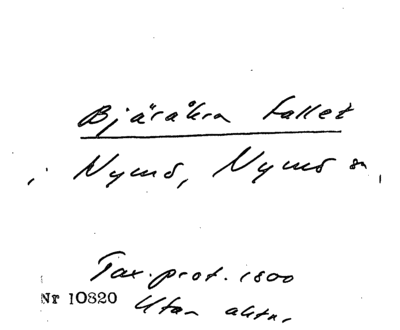 Bjäråkra fallet
i Nymö, Nymö sn,
Tax. prot. 1800
Nr 10820
Utan aktnr.